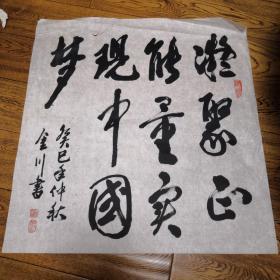 凝聚正
能量实
现中国
梦
癸巳年仲秋
金川书